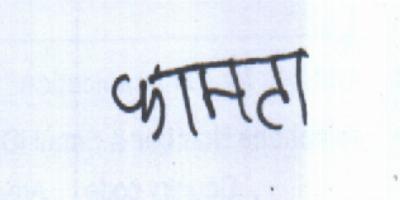 कामता